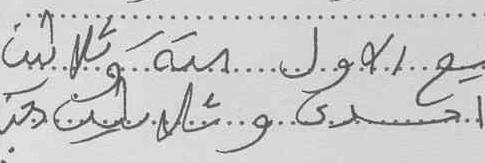 بيع الاول سنة وثلاثين
احدى و ثلاثين سنة